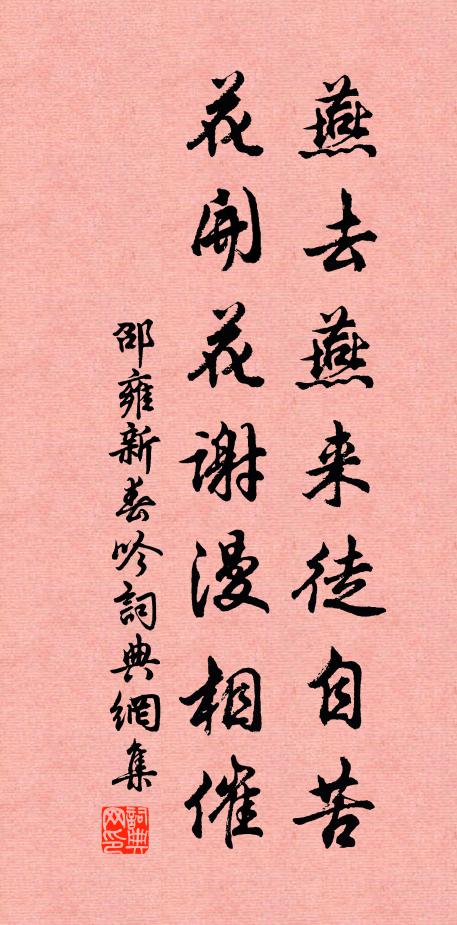 燕去燕来徒自苦
花開花谢漫相催
邵雍新春吟詞典網集
詞典网印